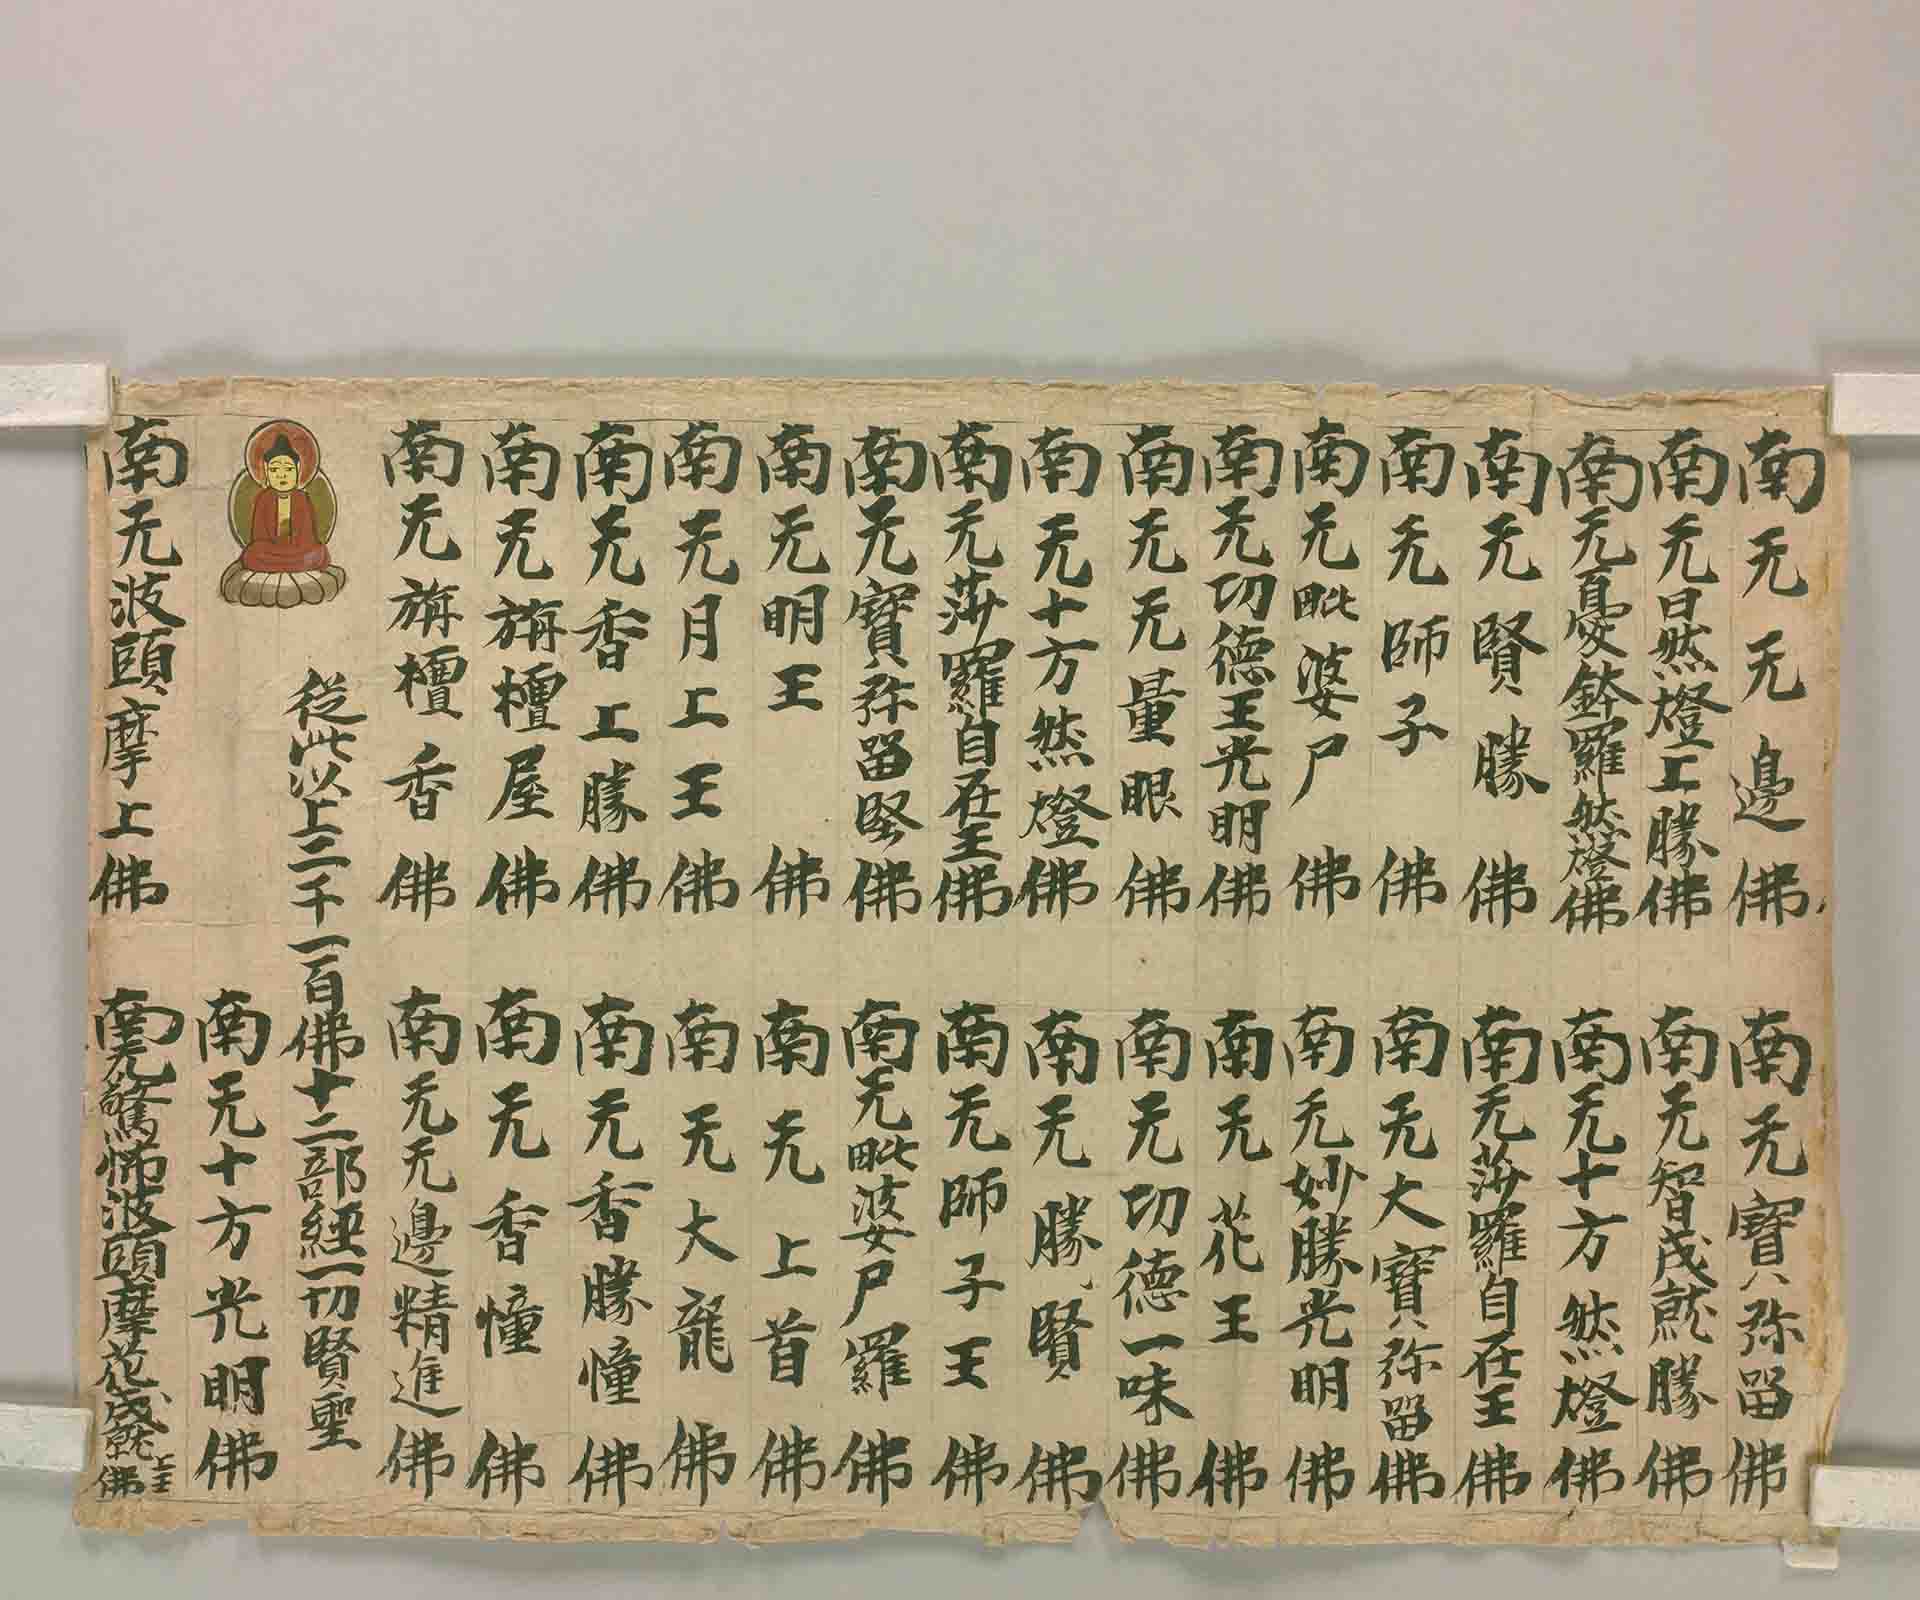 南无无邊佛　南无寶弥留佛
南无日然燈上勝佛　南无智成就勝佛
南无憂鉢羅然燈佛　南无十方然燈佛
南无賢勝佛　南无莎羅自在王佛
南无師子佛　南无大寶弥留佛
南无毗婆尸佛　南无妙勝光明佛
南无功德王光明佛　南无花王佛
南无无量眼佛　南无功德一味佛
南无十方然燈佛　南无勝賢佛
南无莎羅自在王佛　南无師子王佛
南无寶弥留堅佛　南无毗婆尸羅佛
南无明王佛　南无上首佛
南无月上王佛　南无大龍佛
南无香上勝佛　南无香勝幢佛
南无旃檀屋佛　南无香幢佛
南无旃檀香佛　南无无邊精進佛
從此以上二千一百佛十二部經一切賢聖
南无十方光明佛
南无波頭摩上佛　南无驚怖波頭摩花成就上王佛